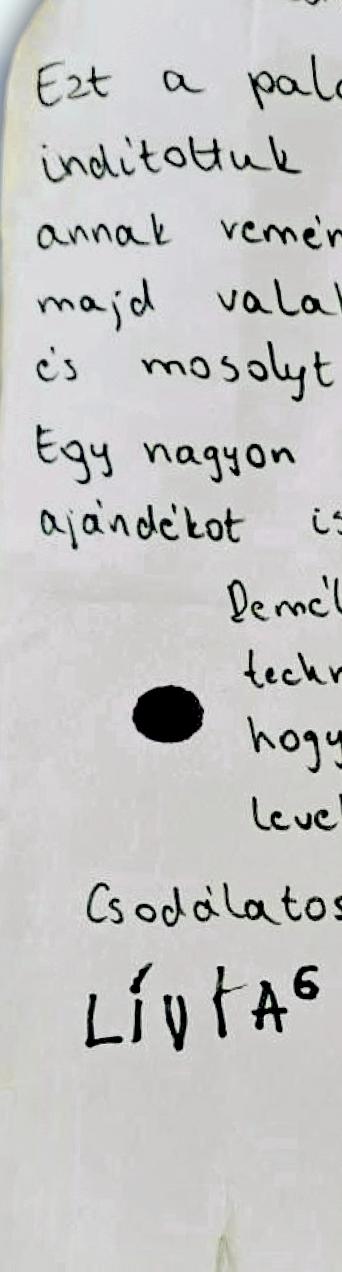 Ezt a pala
indítottuk
annak remén
majd valak
és mosolyt
Egy nagyon
ajándékot is
Remél
techn
hogy
level
Csodálatos
LÍVIA 6